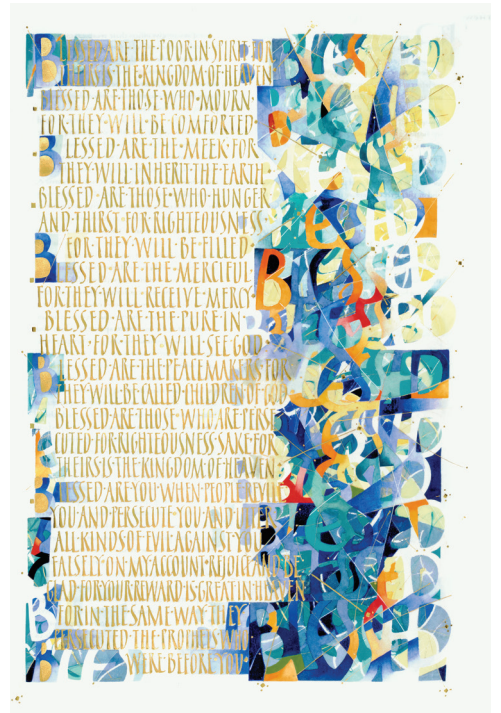 BLESSED·ARE·THE·POOR·IN·SPIRIT·FOR
THEIR·IS·THE·KINGDOM·OF·HEAVEN
BLESSED·ARE·THOSE·WHO·MOURN·
FOR·THEY·WILL·BE·COMFORTED
BLESSED·ARE·THE·MEEK·FOR
THEY·WILL·INHERIT·THE·EARTH
BLESSED·ARE·THOSE·WHO·HUNGER
AND·THIRST·FOR·RIGHTEOUSNESS
FOR·THEY·WILL·BE·FILLED
BLESSED·ARE·THE·MERCIFUL
FOR·THEY·WILL·RECEIVE·MERCY
BLESSED·ARE·THE·PURE·IN
HEART·FOR·THEY·WILL·SEE·GOD
BLESSED·ARE·THE·PEACEMAKERS·FOR
THEY·WILL·BE·CALLED·CHILDREN·OF·GOD
BLESSED·ARE·THOSE·WHO·ARE·PERSE
CUTED·FOR·RIGHTEOUSNESS·SAKE·FOR
THEIRS·IS·THE·KINGDOM·OF·HEAVEN·
BLESSED·ARE·YOU·WHEN·PEOPLE·REVILE
YOU·AND·PERSECUTE·YOU·AND·UTTER
ALL·KINDS·OF·EVIL·AGAINST·YOU
FALSELY·ON·MY·ACCOUNT·REJOICE·AND·BE·
GLAD·FOR·YOUR·REWARD·IS·GREAT·IN·HEAVEN
FOR·IN·THE·SAME·WAY·THEY
PERSECUTED·THE·PROPHETS·WHO
WERE·BEFORE·YOU·